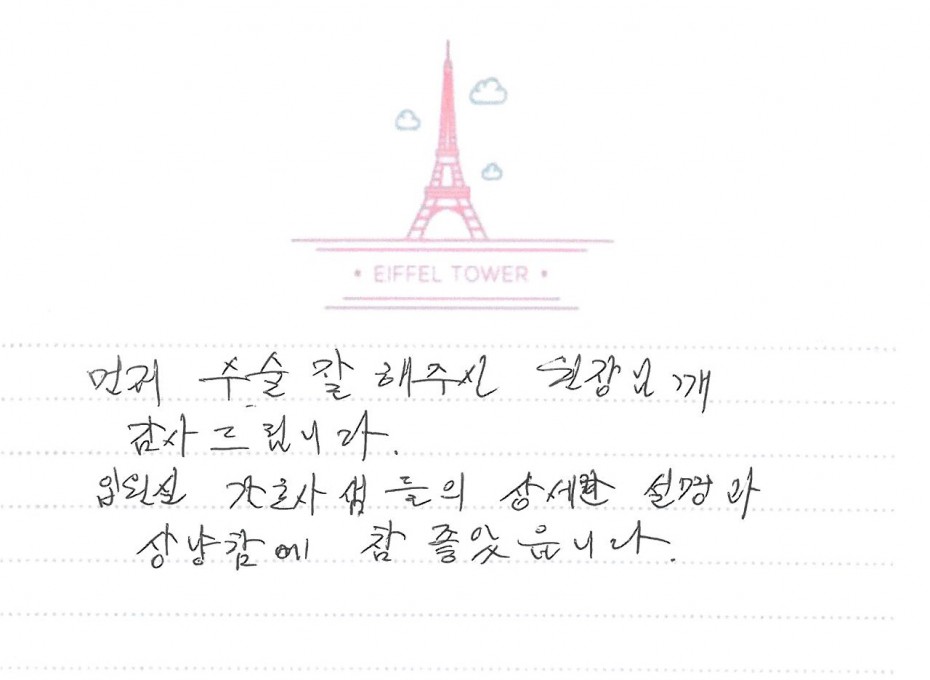 • EIFFEL TOWER •
먼저 수술 잘 해주신 원장님께
감사드립니다.
입원실 간호사 샘들의 상세한 설명과
상냥함에 참 좋았읍니다.